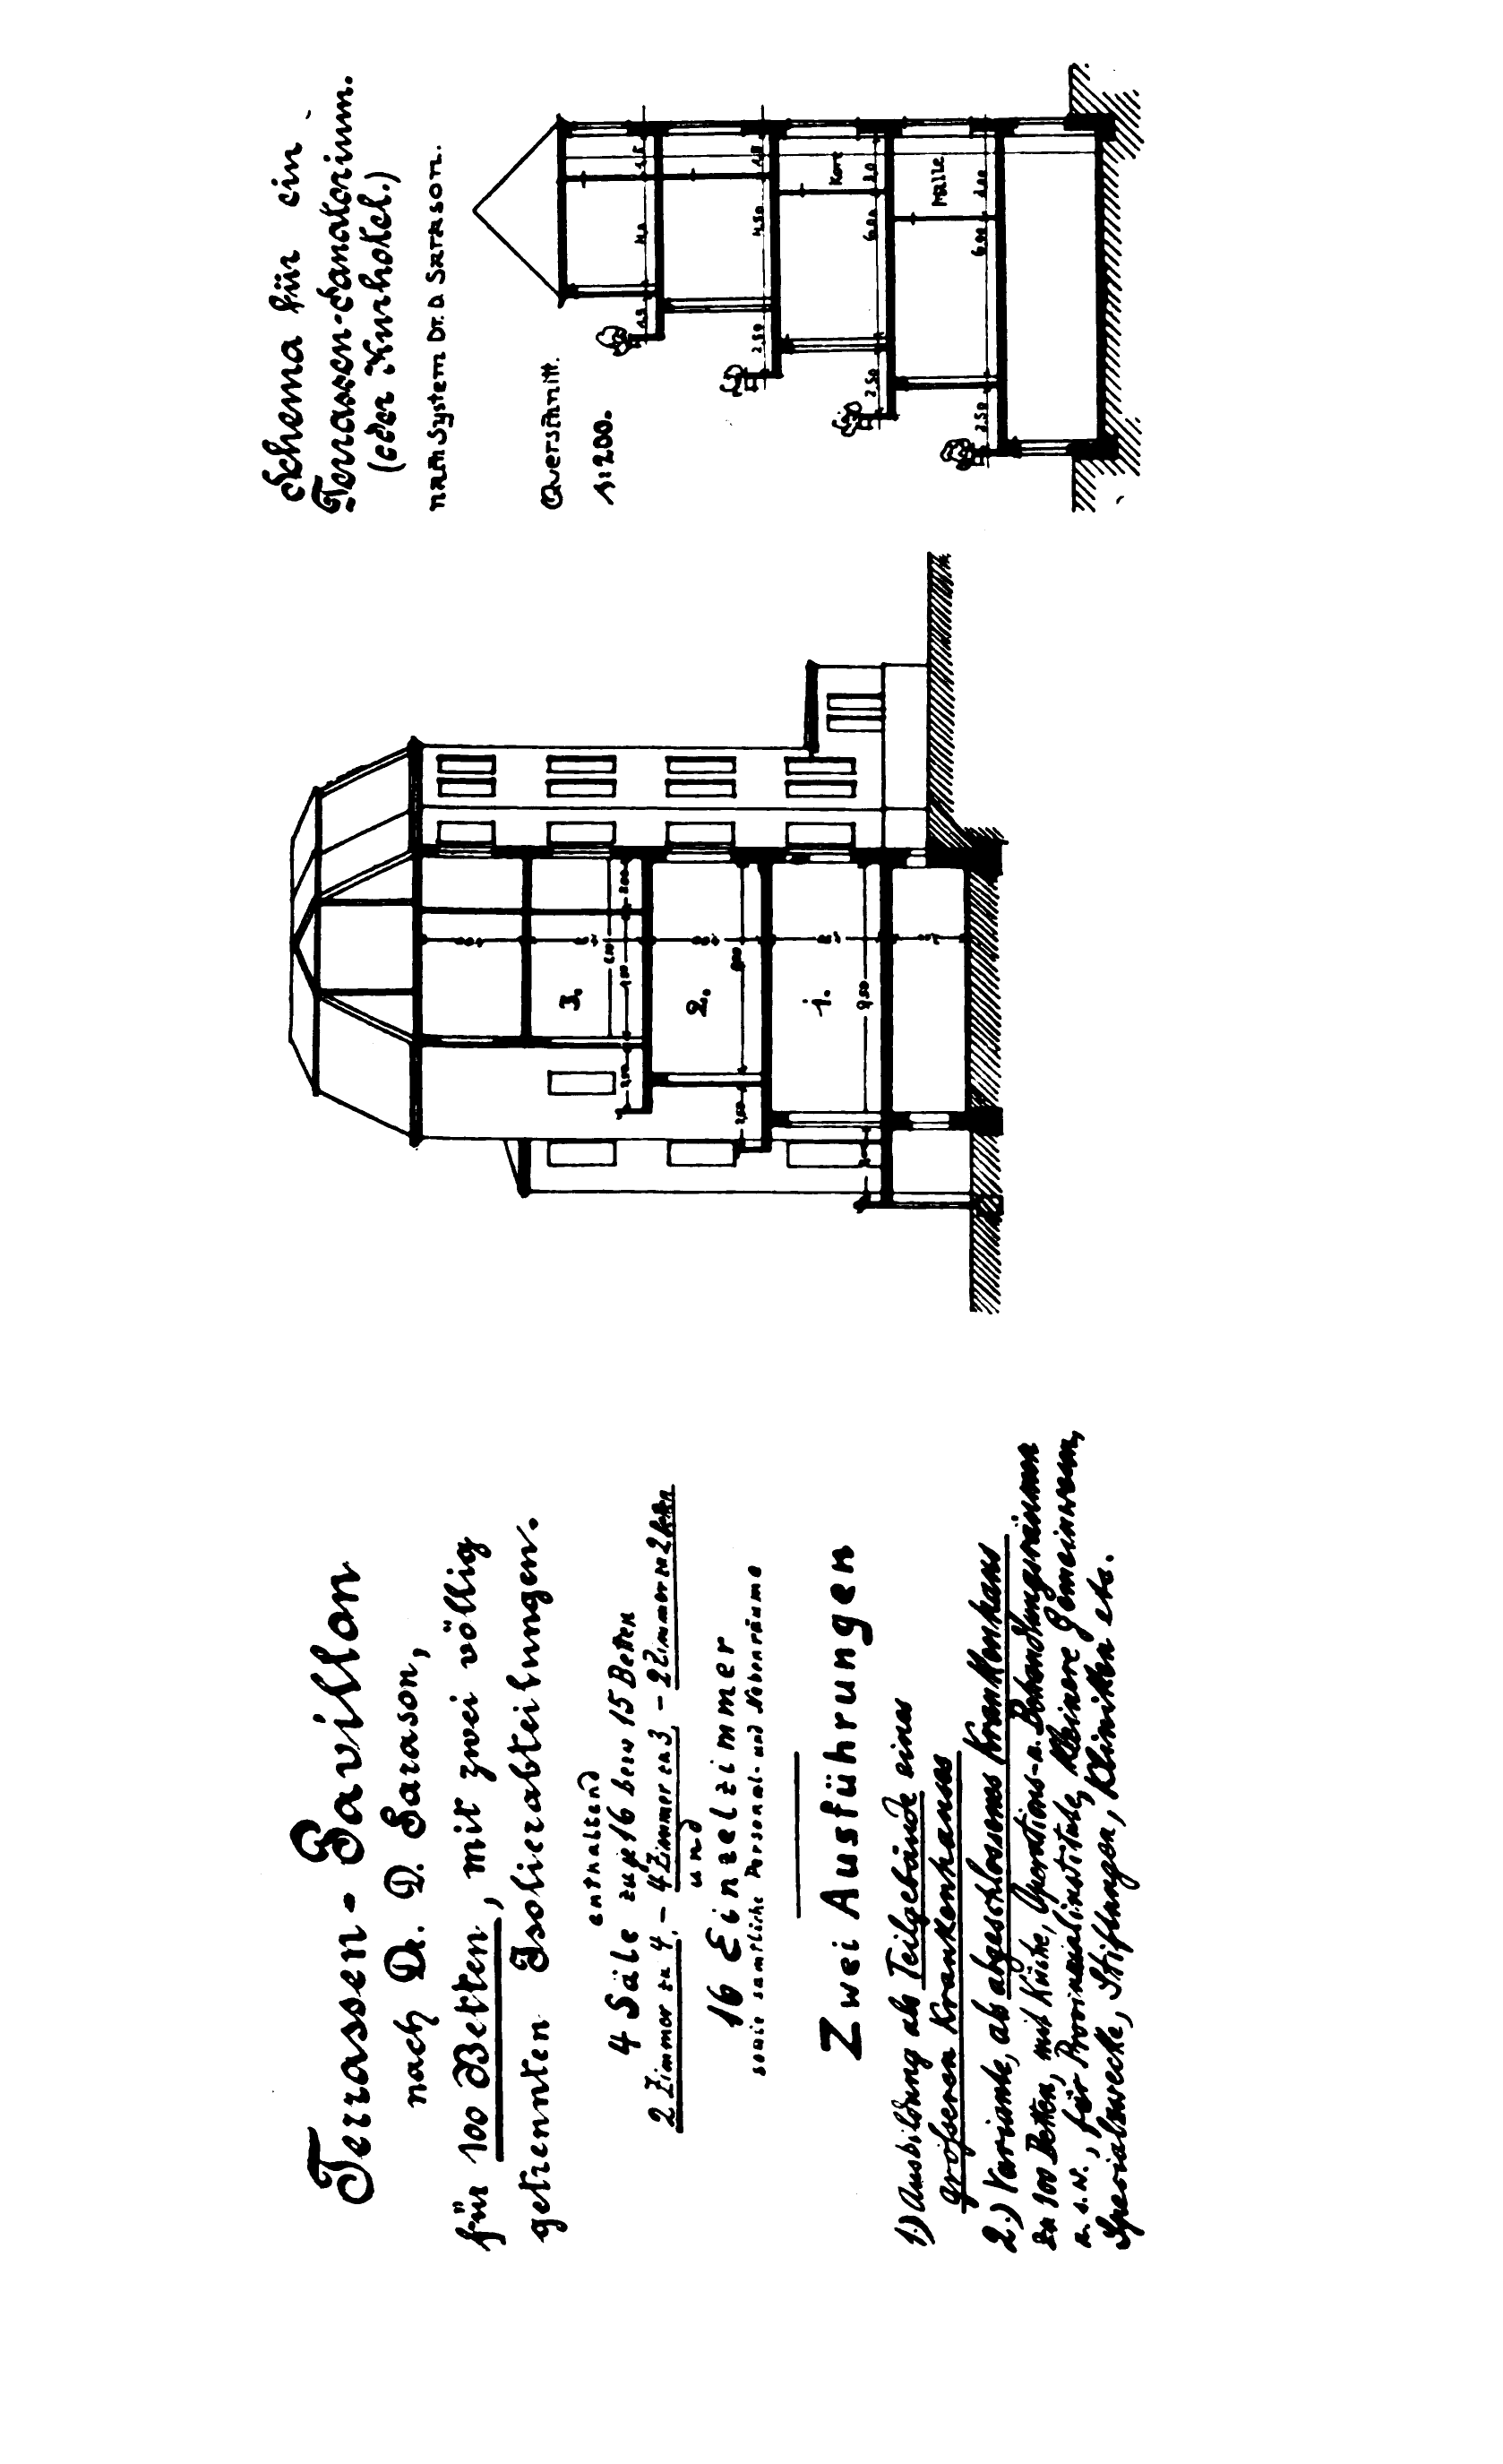 Terrassen-Pavillon
nach Dr. D. Sarason,
für 100 Betten, mit zwei völlig
getrennten Isolierabteilungen.
enthaltend
4 Säle zu je 16 bezw 15 Betten
2 Zimmer zu 4, – 4 Zimmer zu 3, – 2 Zimmer zu 2 Betten
und
16 Einzelzimmer
sowie sämtliche Personal- und Nebenräume
Zwei Ausführungen
1.) Ausbildung als Teilgebäude eines
grösseren Krankenhauses
2.) Variante, als abgeschlossenes Krankenhaus
zu 100 Betten, mit Küche, Operations- u. Behandlungsräumen
u. s. w., für Provinzialinstitute, kleinere Gemeinwesen,
Spezialzwecke, Stiftungen, Kliniken etc.
3.
2.
1.
9,50
Schema für ein
Terrassen-Sanatorium.
(oder Kurhotel.)
nach System Dr. D. Sarason.
Querschnitt.
1:200.
4,50
2,50
6,00
2,50
Halle
6,00
2,50